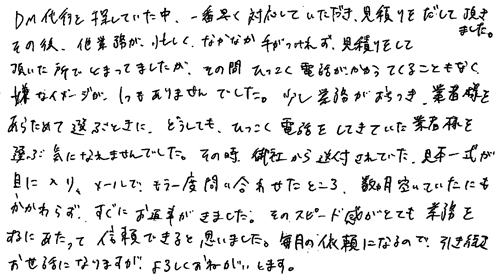 DM代行を探していた中、一番早く対応していただき、見積りをだして頂き
ました。
その後、他業務が忙しく、なかなか手がつけれず、見積りをして
頂いた所でとまってましたが、その間ひつこく電話がかかってくることもなく
嫌なイメージが1つもありませんでした。少し業務がおちつき、業者様を
あらためて選ぶときに、どうしても、ひつこく電話をしてきていた業者様を
選ぶ気になれませんでした。その時、御社から送付されていた、見本一式が
目に入り、メールで、もう一度問い合わせたところ、数ヶ月空いていたにも
かかわらず、すぐにお返事がきました。そのスピード感がとても業務を
するにあたって信頼できると思いました。毎月の依頼になるので、引き続き
お世話になりますが、よろしくおねがいします。